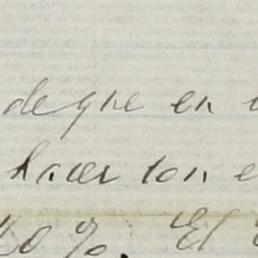 de que en
hacer con e
20 %. El